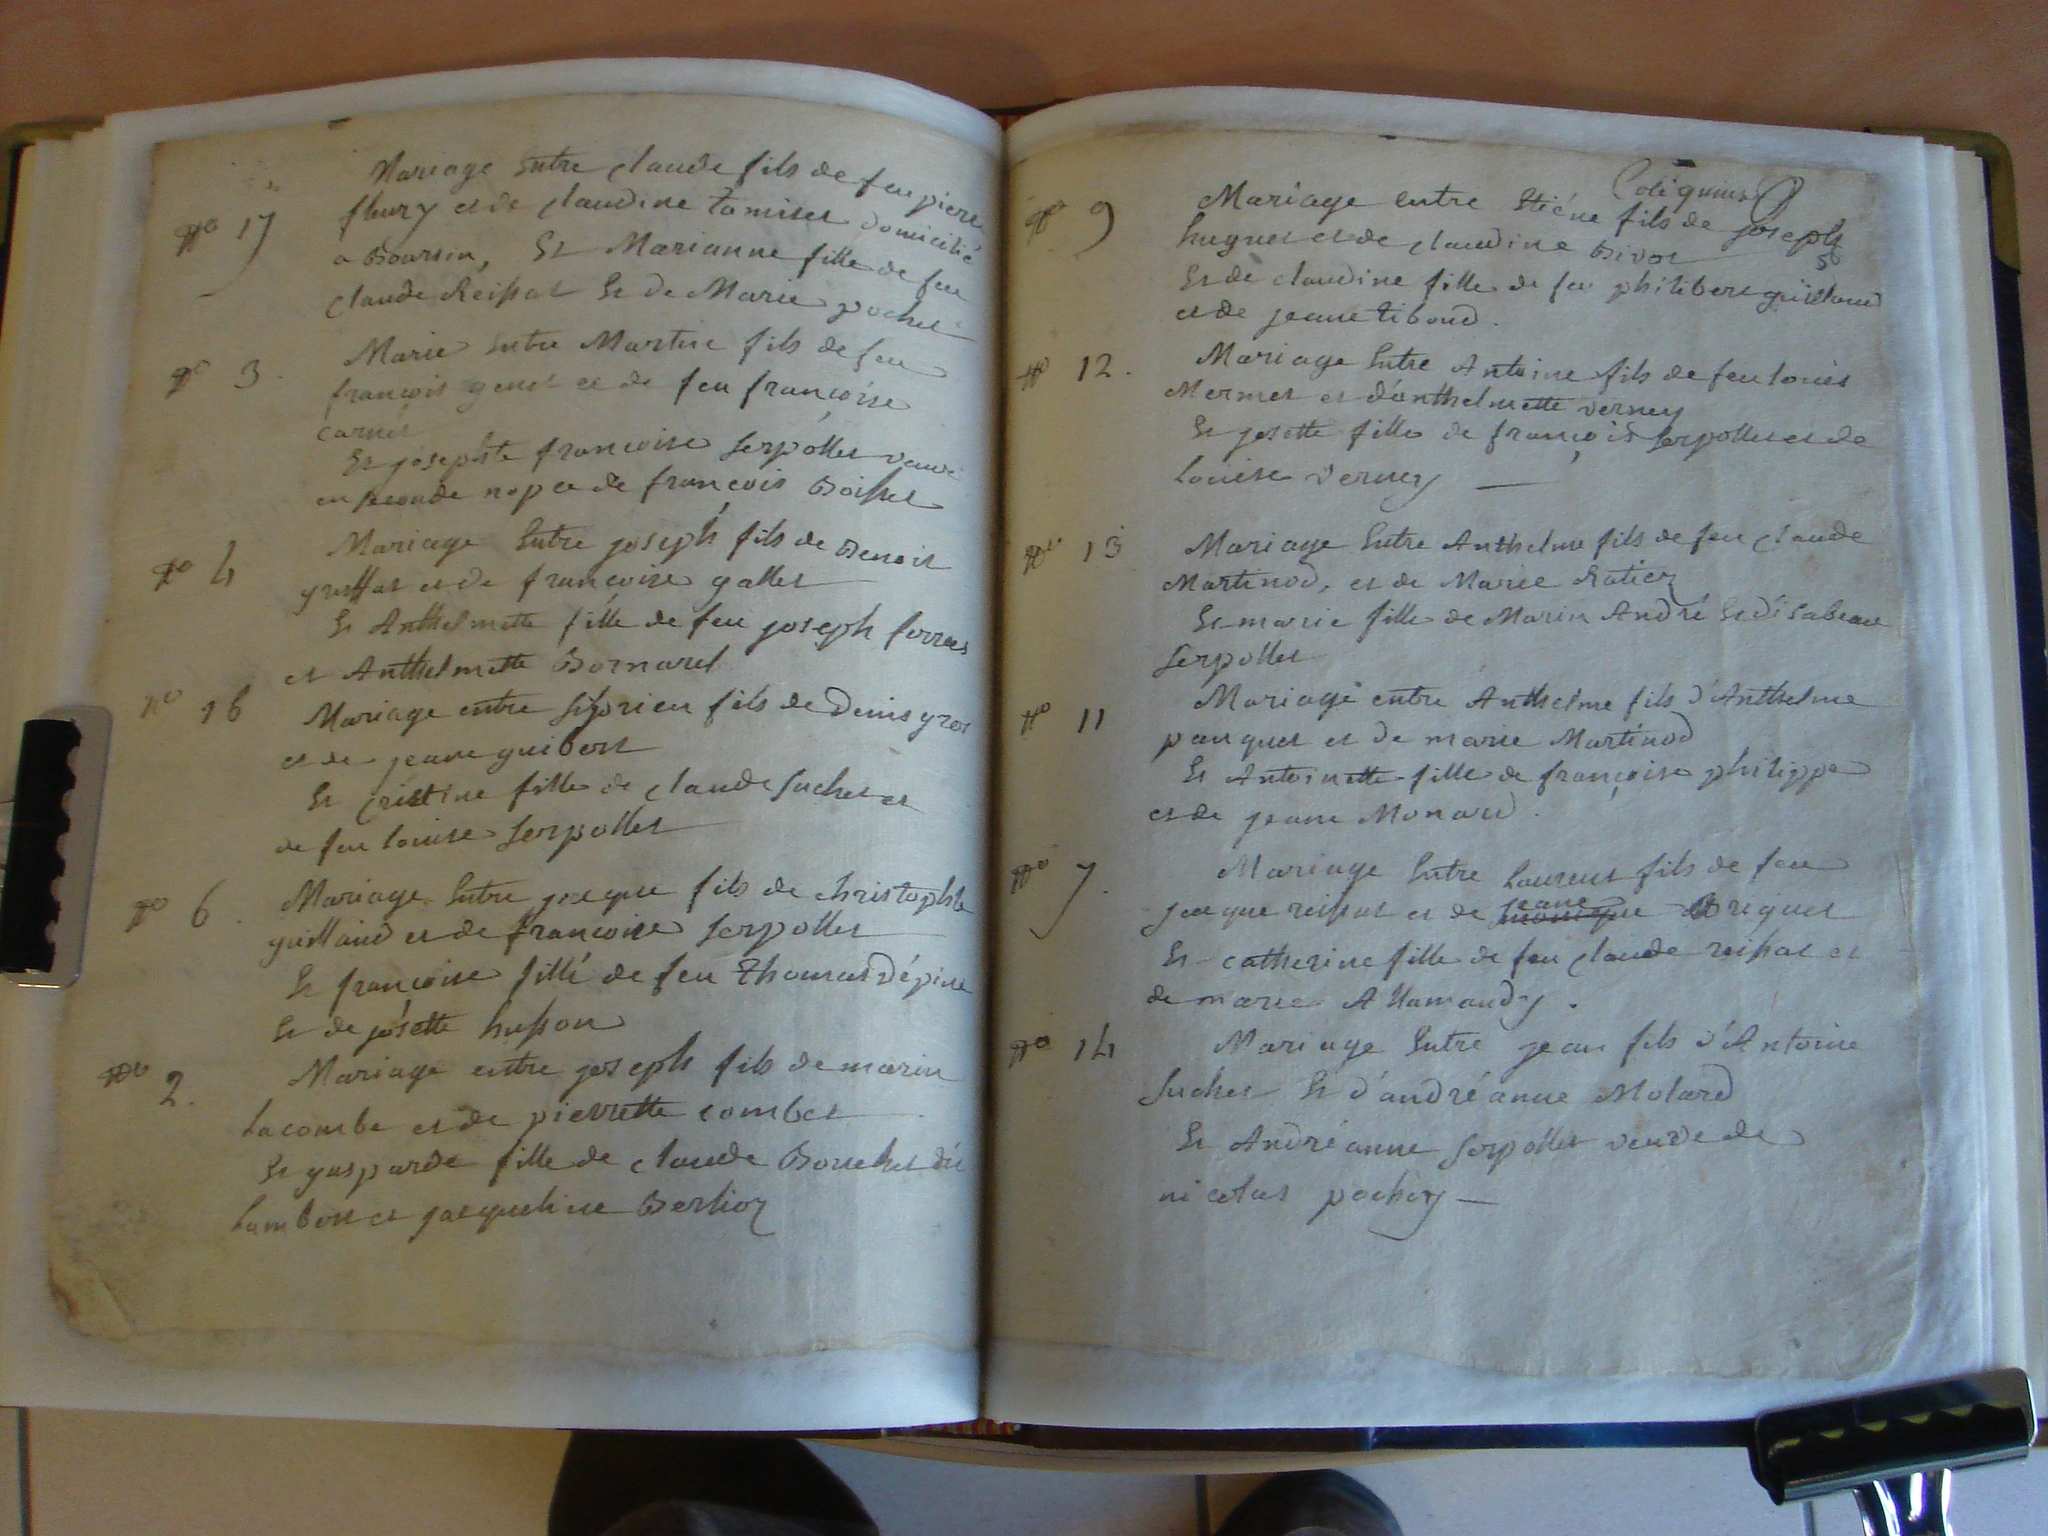 Mariage Entre claude fils de feu piere
No 17 fleury et de claudine tamiset domicilié
a Boursin, Et Marianne fille de feu
claude Reissat Et De Marie pochet
No 3. Marie Entre Martin fils de feu
françois genet et de feu françoise
carrier
Et josephte françoise Serpollet veuve
en seconde nopce de françois Boisset
No 4 Mariage Entre joseph fils de Benoit
gruffat et de françoise gallet
Et Anthelmette fille de feu joseph ferras
et Anthelmette Bornarel
No 16 Mariage entre fils de Denis gros
et de jeane guibert
Et cristine fille de claude Suchet et
de feu louise Serpollet
No 6. Mariage Entre jacque fils de christophle
guilland et de françoise Serpollet
Et françoise fille de feu Thomas Dépine
Et de josette husson
No 2. Mariage entre joseph fils de marin
Lacombe et de pierrette combet
Et gasparde fille de claude Bouchet dit
Lambert et jacqueline Berlioz
Coligniens
No 9 Mariage entre Etiéne fils de joseph
hugues et de claudine Bivot
5
Et de claudine fille de feu philibert guilland
et de jeane tiboud.
No 12. Mariage Entre Antoine fils de feu louis
Mermet et d'anthelmette verney
Et josette fille de françois Serpollet et de
Louise verney
No 13 Mariage Entre Anthelme fils de feu claude
Martinod, et de Marie Ratiez
Et marie fille de Marin André Et d'isabeau
Serpollet
No 11 Mariage entre Anthelme fils d'Anthelme
pauquet et de marie Martinod
Et Antoinette fille de françoise philippe
et de jeane Monard.
No 7. Mariage Entre Laurent fils de feu
jacque reissat et de jeane Briguet
Et catherine fille de feu claude reissat et
de marie Allamandy.
No 14 Mariage Entre jean fils d'Antoine
Suchet Et d'andréanne Molard
Et Andréanne Serpollet veuve de
nicolas pochoy